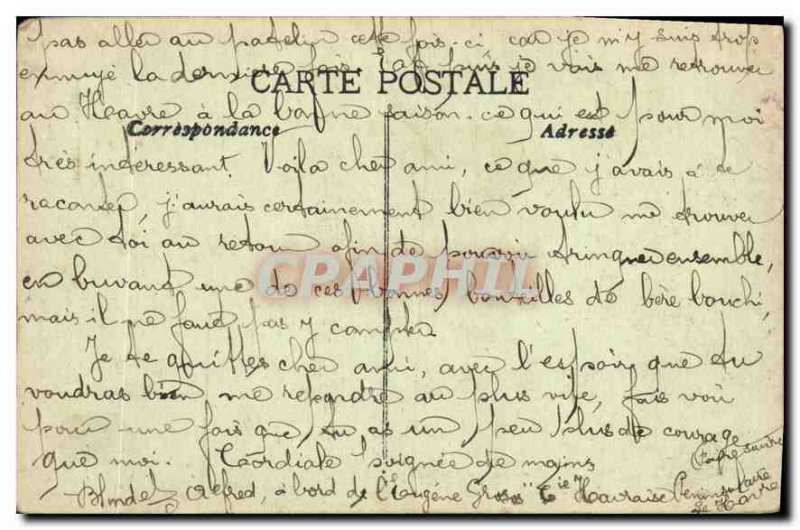 pas aller au patelin cette fois-ci, car je m'y suis trop
ennuyé la dernière fois. Et puis je vais me retrouver
CARTE POSTALE
au Havre à la bonne saison. ce qui est pour moi
Correspondance
Adresse
très intéressant. Voilà cher ami, ce que j'avais à te
raconter, j'aurais certainement bien voulu me trouver
avec toi au retour afin de pouvoir trinquer ensemble,
en buvant une de ces bonnes bouteilles de bère bouchi,
CPAPHIL
mais il ne faut pas y compter
Je te quittes cher ami, avec l'espoir que tu
voudras bien me répondre au plus vite, fais voir
pour une fois que tu as un peu plus de courage
que moi. Cordiale poignée de mains
Blondel Alfred, à bord de l'Eugène Cie Havraise Péninsulaire
Le Havre
faire suivre